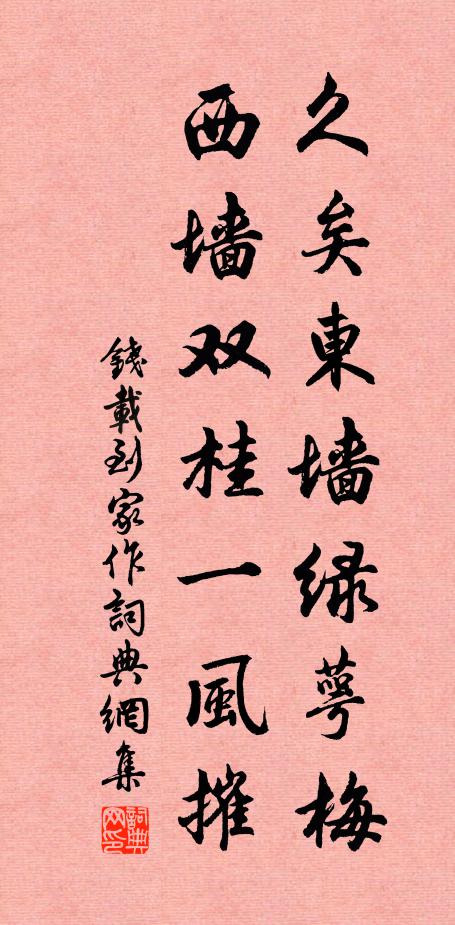 久矣東墙绿萼梅
西墙双桂一風摧
錢載到家作詞典網集
詞典网印